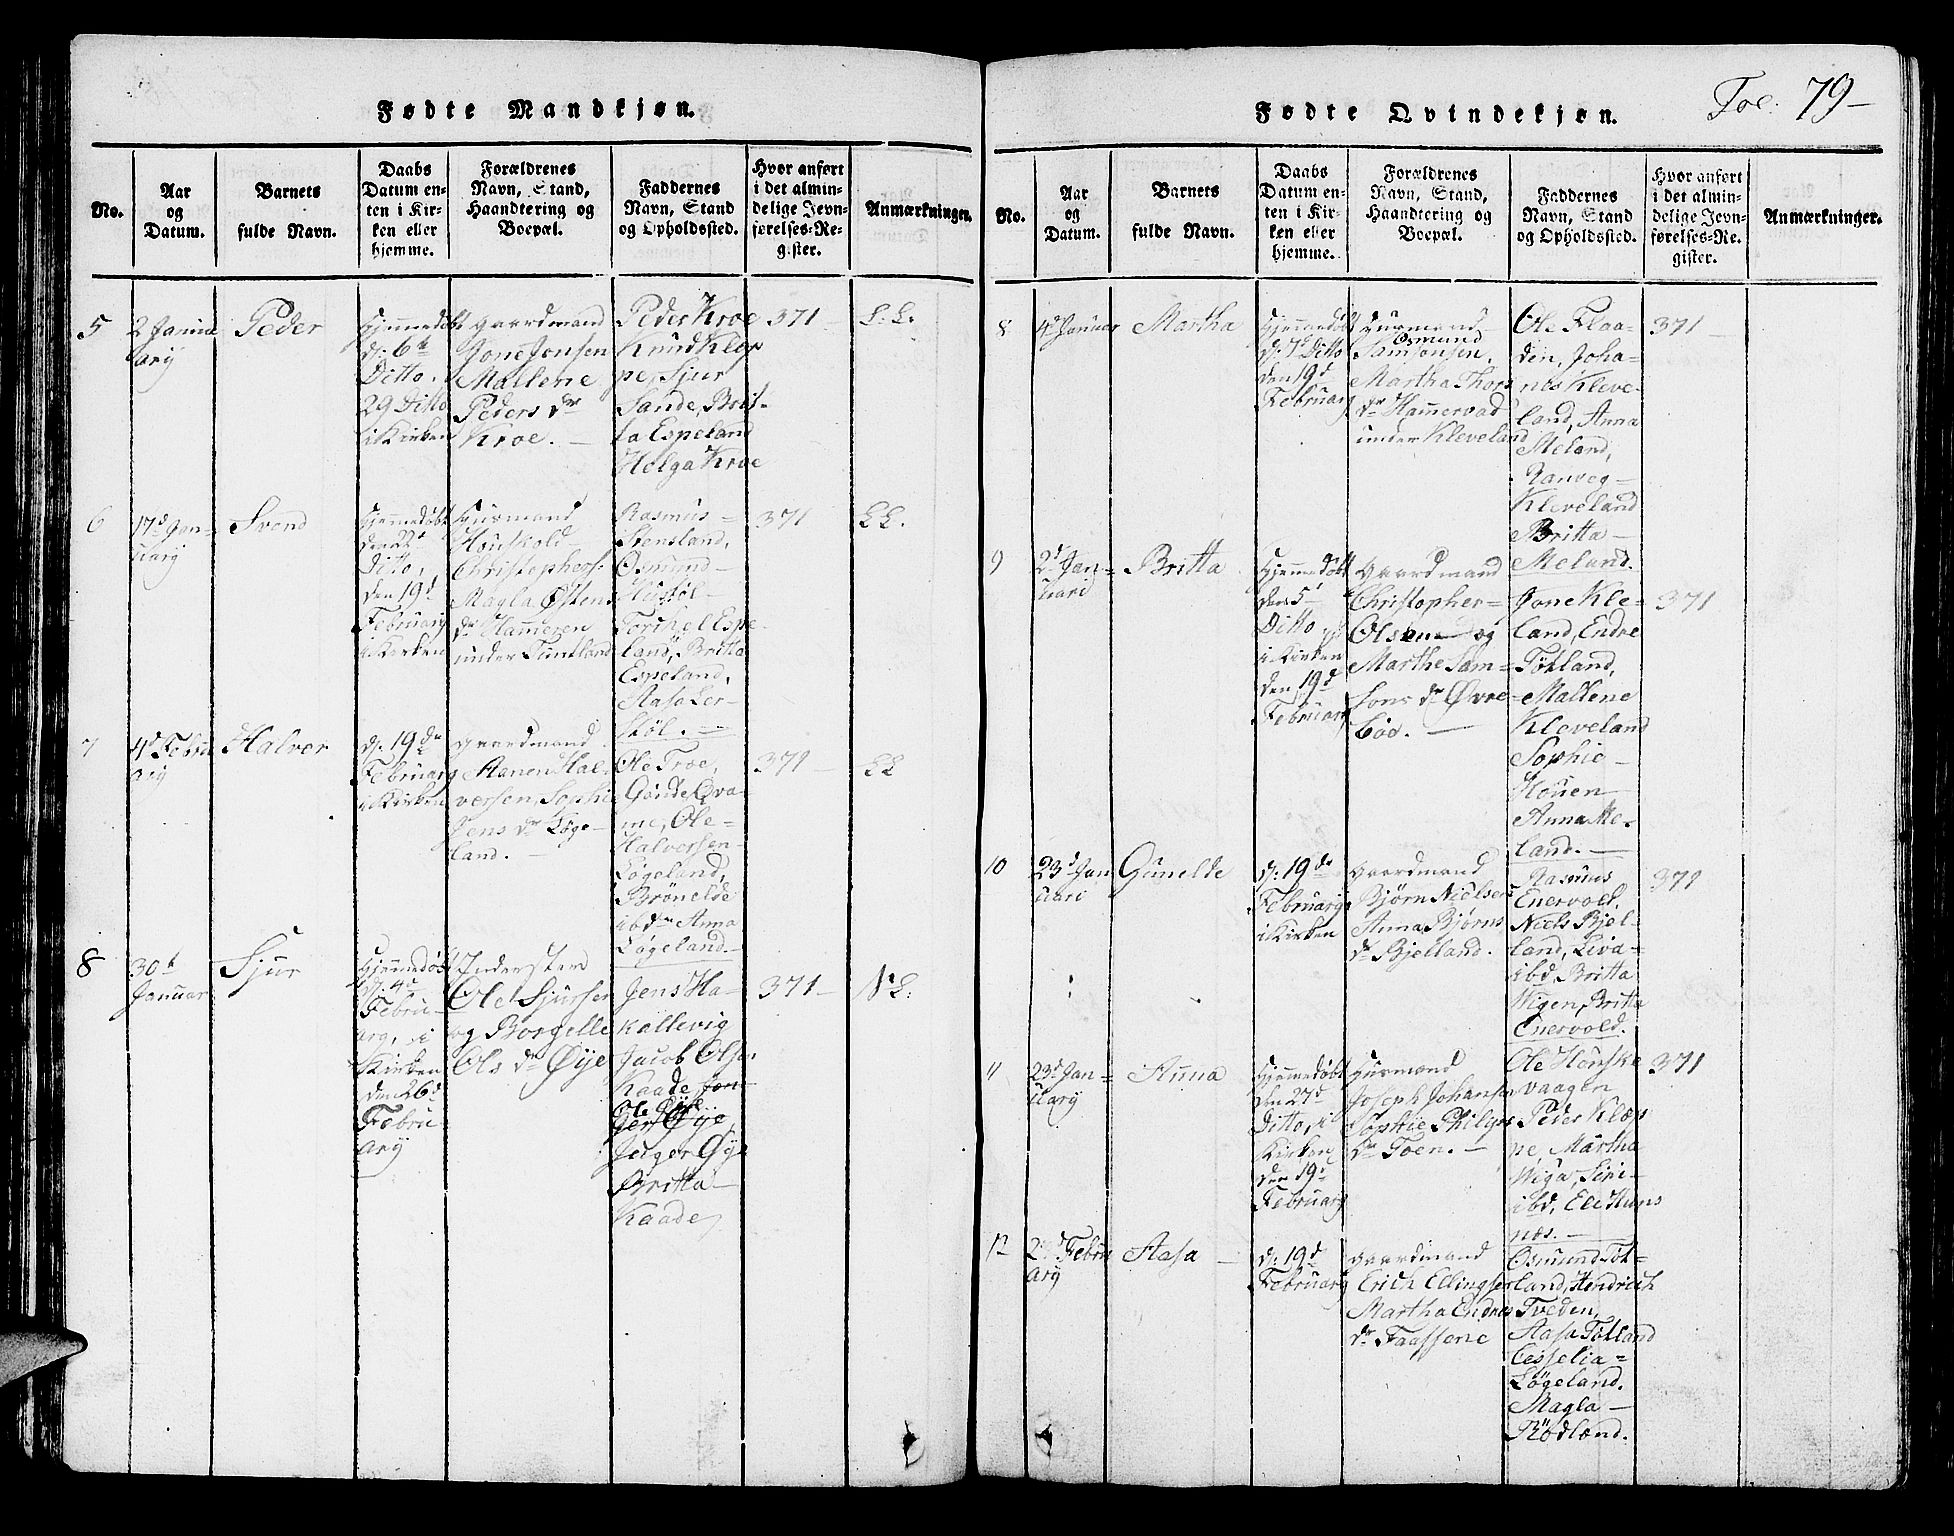 Fødte Mandkjøn.
No.
Aar
og
Datum.
Barnets
fulde Navn.
Daabs
Datum en-
ten i Kir-
ken eller
hjemme.
Forældrenes
Navn, Stand,
Haandtering og
Boepæl.
Faddernes
Navn, Stand
og Opholdssted.
Hvor anført
i det almin-
delige Jevn-
førelses-Re-
gister.
Anmærkninger.
5
2 Janu
ary
Peder
Hjemmedøbt
d: 6te
Ditto.
29 Ditto
i Kirken
Gaardmand
Jone Jonsen
Mallene
Peders dr
Kroe. —
Peder Kroe
Knud Klep
pe, Sjur
Sande, Brit-
ta Espeland
Helga Kroe
371
E. E.
6
17d Jan-
uary
Svend
Hjemmedøbt
den 22d
Ditto,
den 19d
Februarj
i Kirken
Huusmand
Houskold
Christophers.
Magla Østens
dr Hammeren
under Tuntland
Rasmus =
Stensland,
Osmund —
Hustøl —
Torkel Espe
land, Britta
Espeland,
Aasa Ler-
støl. —
371
E E.
7
4d Febru
ary
Halvor
d: 19de
Februarj
i Kirken
Gaardmand
Aanen Hal-
versen, Sophie
Jens dr Løge-
land. —
Ole Troe,
Gunde Qva-
me, Ole =
Halversen
Løgeland,
Brønelde
ibdm Anna
Løgeland. —
371
E E
8
30t
Januar
Sjur
Hjemmedøbt
d: 4de
Febru-
ary, i
Kirken
den 26d
Febru-
ary
Inderstem
Ole Sjursen
og Borgelle
Ols dr Øÿe
Jens Ha-
kallevig
Jacob Olsen
Kaade
Ole Øÿe
Øÿe
Jeger Øÿe
Britta —
Kaade
371 —
N. E.
Fol: 79 —
Fødte Qvindekjøn.
No.
Aar
og
Datum.
Barnets
fulde Navn.
Daabs
Datum en-
ten i Kir-
ken eller
hjemme.
Forældrenes
Navn, Stand,
Haandtering og
Boepæl.
Faddernes
Navn, Stand
og Opholdssted.
Hvor anført
i det almin-
delige Jevn-
førelses-Re-
gister.
Anmærkninger.
8
4d Januar
Martha
Hjemmedøbt
d: 7d Ditto
den 19d
Februarj
Huusmand
Osmund
Samsonsen,
Martha Thors
dr Hammervad
under Kleveland
Ole Flaa-
den, Joha-
nes Kleve-
land, Anna
Meland,
Ranveg —
Kleveland
Britta —
Meland.
371 —
9
2d Jan =
uari
Britta
Hjemmedøbt
den 5
Ditto,
i Kirken
den 19d
Februarj
Gaardmand
Christopher =
Olsen og
Marthe Sam =
sons dr Øvre
boe. —
Jone Kle-
land, Endre
Totland,
Mallene
Kleveland
Sophie —
Houen —
Anna Me-
land. —
371
10
23d Jan
uari
Gunelde
d: 19de
Februarj
i Kirken
Gaardmand
Bjørn Nielsen
Anna Bjørns
dr Bjelland.
Rasmus
Enervold,
Niels Bjel-
land, Liva
ibd, Britta
Wigen, Britta
Enervold.
371
11
23d Jan =
uary
Anna
Hjemmedøbt
den 27d
Ditto, i
Kirken
den 19d
Februarj
Huusmand
Joseph Johansen
Sophie Philips
dr Toen. —
Ole Houske
vaagen
Peder Klep
pe, Martha
Wiga, Siri
ibd, Eli Huns
næs. —
371
12
Febru
ary
Aasa —
d: 19d
Februarj
Gaardmand
Erich Ellingsen
Martha Endres
dr Faassene
Osmund Tot-
land, Hendrich
Tveden,
Aasa Totland
Cesselia =
Løgeland.
Magla —
Rødland.